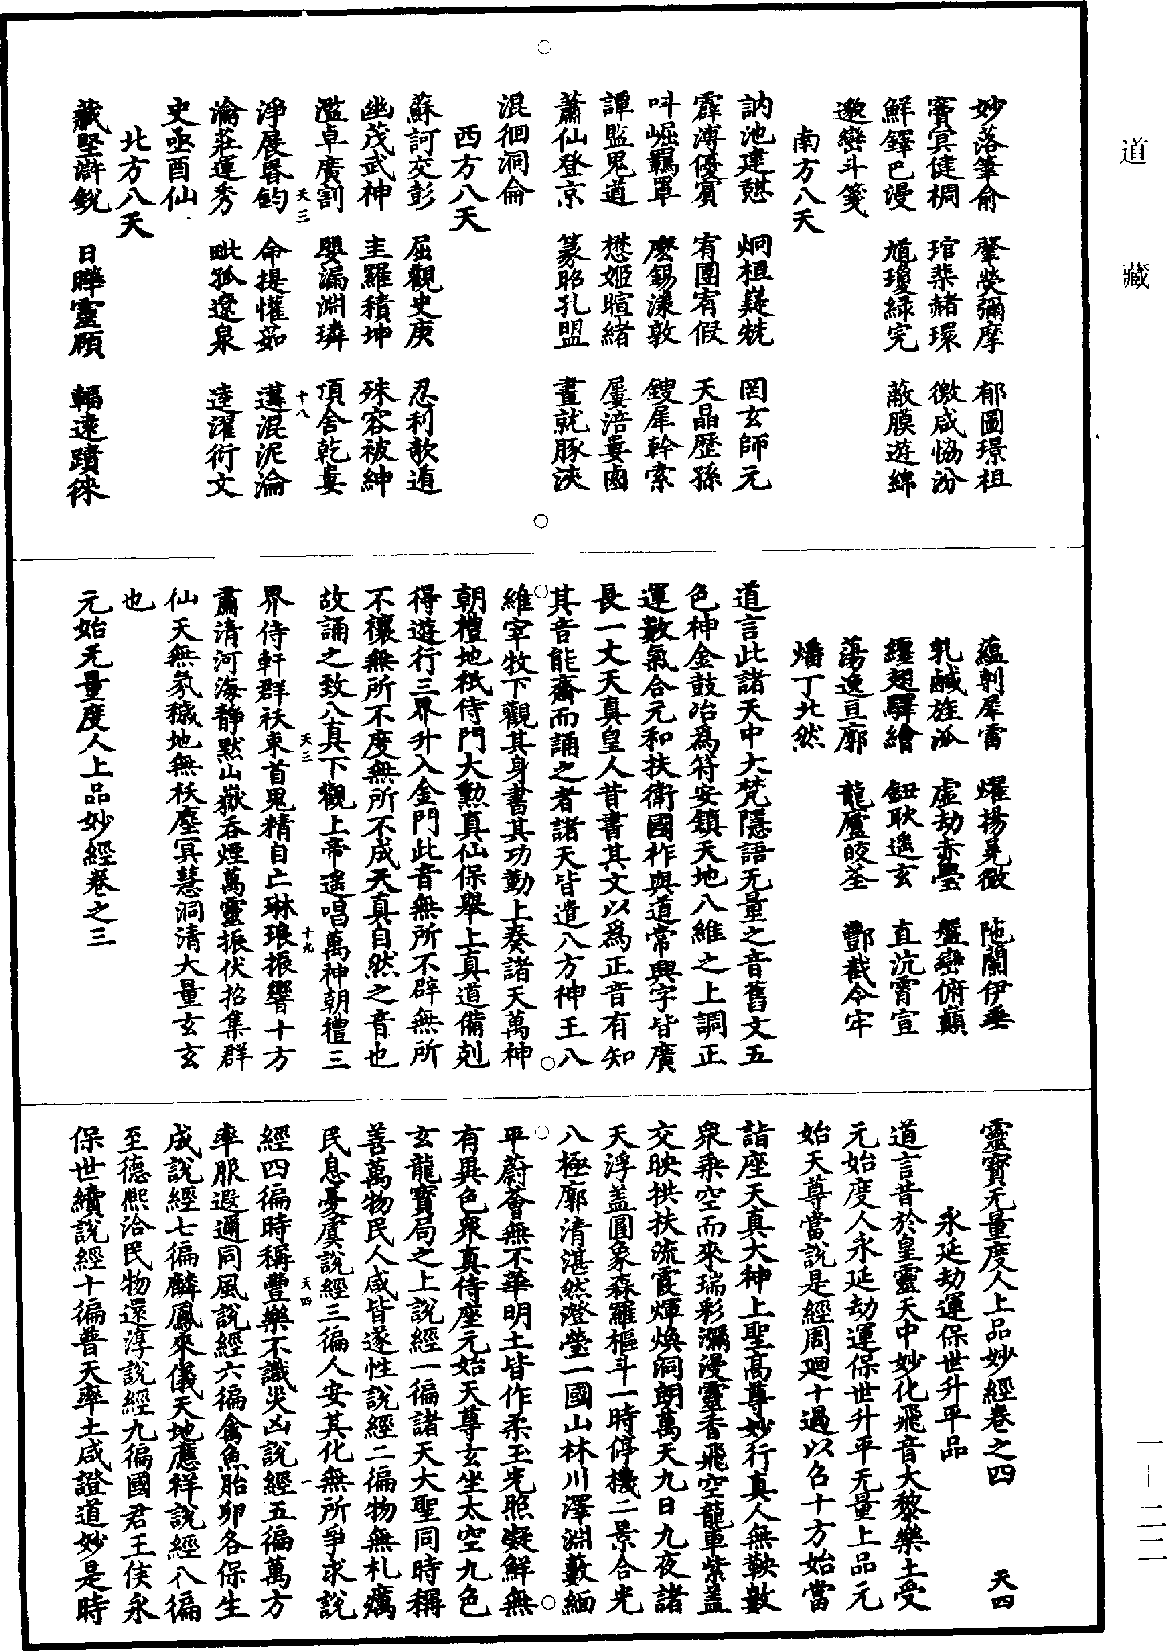 道藏
妙落筆俞　肇熒彌摩　郁圖璟祖
賷冥健椆　琯棐赭環　微咸恊汾
鮮鐸巴漫　馗瓊綠完　蔽膜遊綿
邀巒斗箋
南方八天
訥池建㥽　炯桓嶷兟　罔玄師元
霹溥優賓　宥團宥假　天晶歷孫
呌崛羈罩　麼錫漾敦　鎪犀幹索
譚監鬼道　懋姬暄緒　屢涪婁鹵
蕭仙登京　篆昭孔盟　畫就豚浹
混徊洞侖
西方八天
蘇訶交彭　屈觀史庚　忍利歌逌
幽茂武神　圭羅積坤　殊容被紳
濫卓廣割　嬰漏淵璘　項舍乾婁
天三　十八
淨展昬鈞　命提懽茹　邁混泥淪
瀹莊運秀　毗孤遼泉　逵濯衍文
史亟酉仙
北方八天
藏堅滸銳　日曄靈頋　輻逮蹟徠
蘊剌犀雷　燿揚晃徵　陁蘭伊垂
乳鹹旌泒　虛劫赤曇　盤巒俯巔
纏翅驛繪　鈕耿遙玄　直沆霄宣
蕩逸亘廓　龍廬皎荃　酆截令牢
燔丁北然
道言此諸天中大梵隱語无量之音舊文五
色神金鼓冶為符安鎮天地八維之上調正
運數氣合元和扶衛國祚與道常興字皆廣
長一丈天真皇人昔書其文以為正音有知
其音能齋而誦之者諸天皆遣八方神王八
維宰牧下觀其身書其功勤上奏諸天萬神
朝禮地祇侍門大勳真仙保舉上真道備剋
得遊行三界升入金門此音無所不辟無所
不禳無所不度無所不成天真自然之音也
故誦之致八真下觀上帝遙唱萬神朝禮三
天三　十九
界侍軒群祅束首鬼精自亡琳琅振響十方
肅清河海靜默山嶽吞煙萬靈振伏招集群
仙天無氛穢地無祅塵冥慧洞清大量玄玄
也
元始无量度人上品妙經卷之三
靈寶无量度人上品妙經卷之四　天四
永延劫運保世升平品
道言昔於皇靈天中妙化飛音大黎樂土受
元始度人永延劫運保世升平无量上品元
始天尊當說是經周廻十過以召十方始當
詣座天真大神上聖高尊妙行真人無鞅數
眾乘空而來瑞彩瀰漫靈香飛空龍車紫蓋
交映拱扶流霞煇煥洞朗萬天九日九夜諸
天浮蓋圓象森羅樞斗一時停機二景合光
八極廓清湛然澄瑩一國山林川澤淵藪緬
平蔚薈無不華明土皆作柔玉光照凝鮮無
有異色眾真侍座元始天尊玄坐太空九色
玄龍寶局之上說經一徧諸天大聖同時稱
善萬物民人咸皆遂性說經二徧物無札癘
民息憂虞說經三徧人安其化無所爭求說
天四　一
經四徧時稱豐樂不識災凶說經五徧萬方
率服遐邇同風說經六徧禽魚胎卵各保生
成說經七徧麟鳳來儀天地應祥說經八徧
至德熙洽民物還淳說經九徧國君王侯永
保世續說經十徧普天率土咸證道妙是時
一—二二